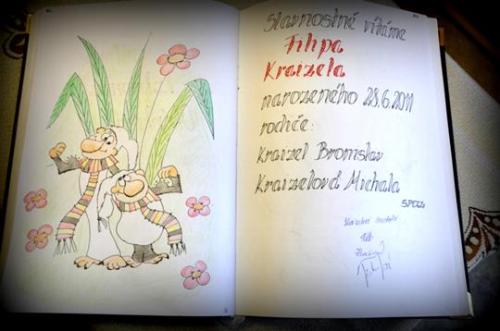 Slavnostně vítáme
Filipa
Kraizela
narozeného 28.6.2011
rodiče:
Kraizel Bromslav
Kraizelová Michala